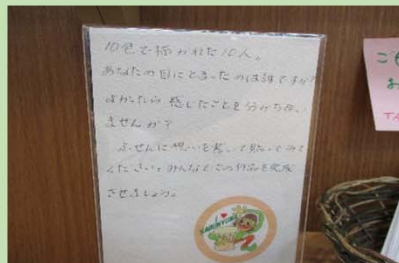 10色で描かれた10人。
あなたの目にとまったのは誰ですか?
よかったら感じたことを分かち合い
ませんか?
ふせんに想いを書いて貼ってみて
ください。みんなでこの作品を完成
させましょう。